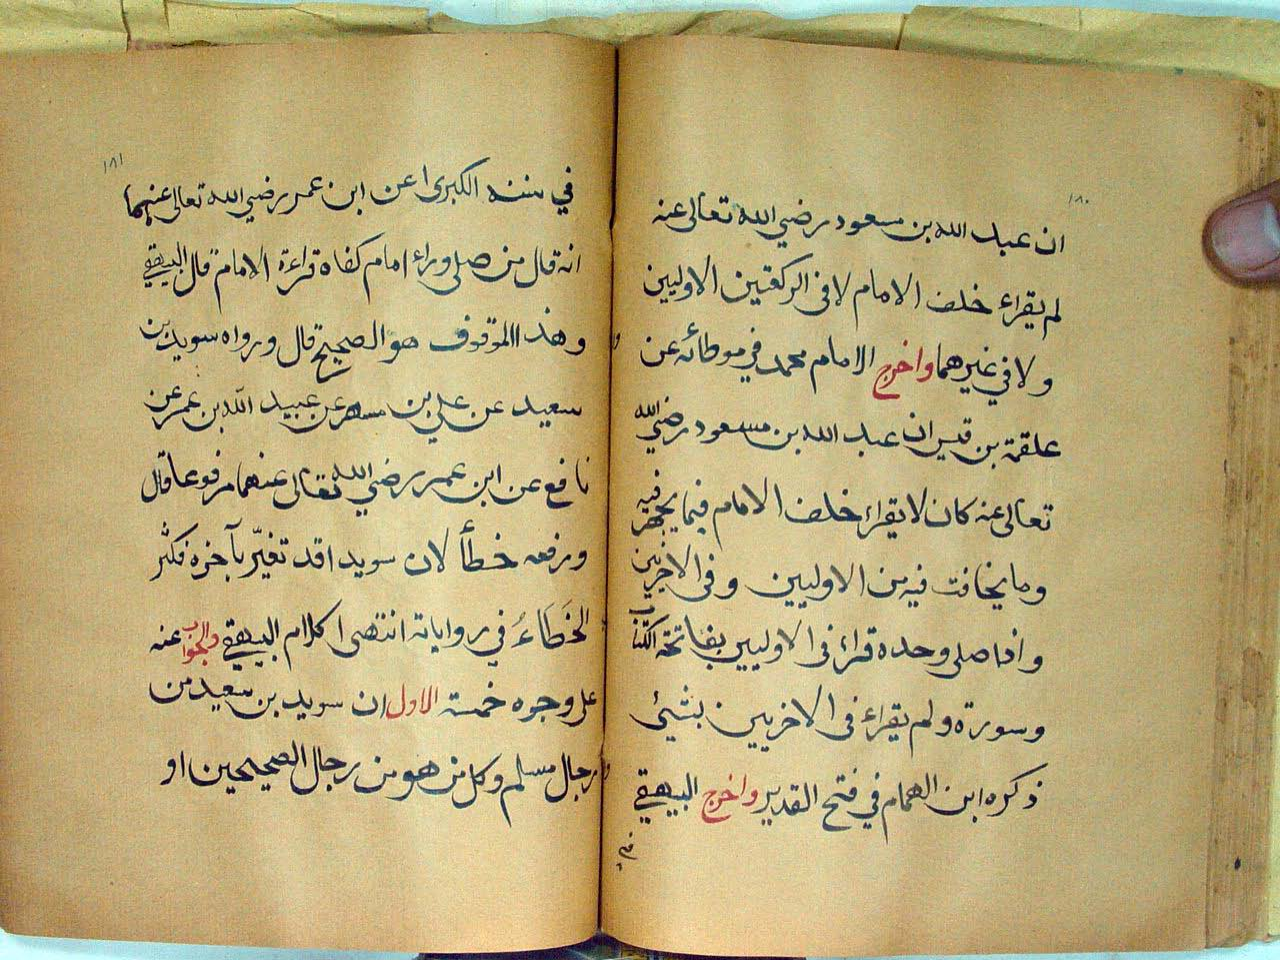 ١٨٠
ان عبد الله بن مسعود رضي الله تعالى عنه
لم يقراء خلف الامام لا فى الركعتين الاوليين
ولا في غيرهما واخرج الامام محمد في موطائه عن
علقمة بن قيس ان عبد الله بن مسعود رضي الله
تعالى عنه كان لا يقراء خلف الامام فيما يجهر فيه
وما يخافت فيه من الاوليين وفى الاخريين
واذا صلى وحده قراء فى الاوليين بفاتحة الكتاب
وسورة ولم يقراء فى الاخريين بشيئ
ذكره ابن الهمام في فتح القدير واخرج البيهقي
في
١٨١
في سننه الكبرى عن ابن عمر رضي الله تعالى عنهما
انه قال من صلى وراء امام كفاه قراءة الامام قال البيهقي
وهذا الموقوف هو الصحيح قال ورواه سويد بن
سعيد عن علي بن مسهر عن عبيد الله بن عمر عن
نافع عن ابن عمر رضي الله تعالى عنهما مرفوعا قال
ورفعه خطأ لان سويدا قد تغيّر بآخره فكثر
الخَطَاءُ في رواياته انتهى كلام البيهقي والجواب عنه
على وجوه خمسة الاول ان سويد بن سعيد من
رجال مسلم وكل من هو من رجال الصحيحين او